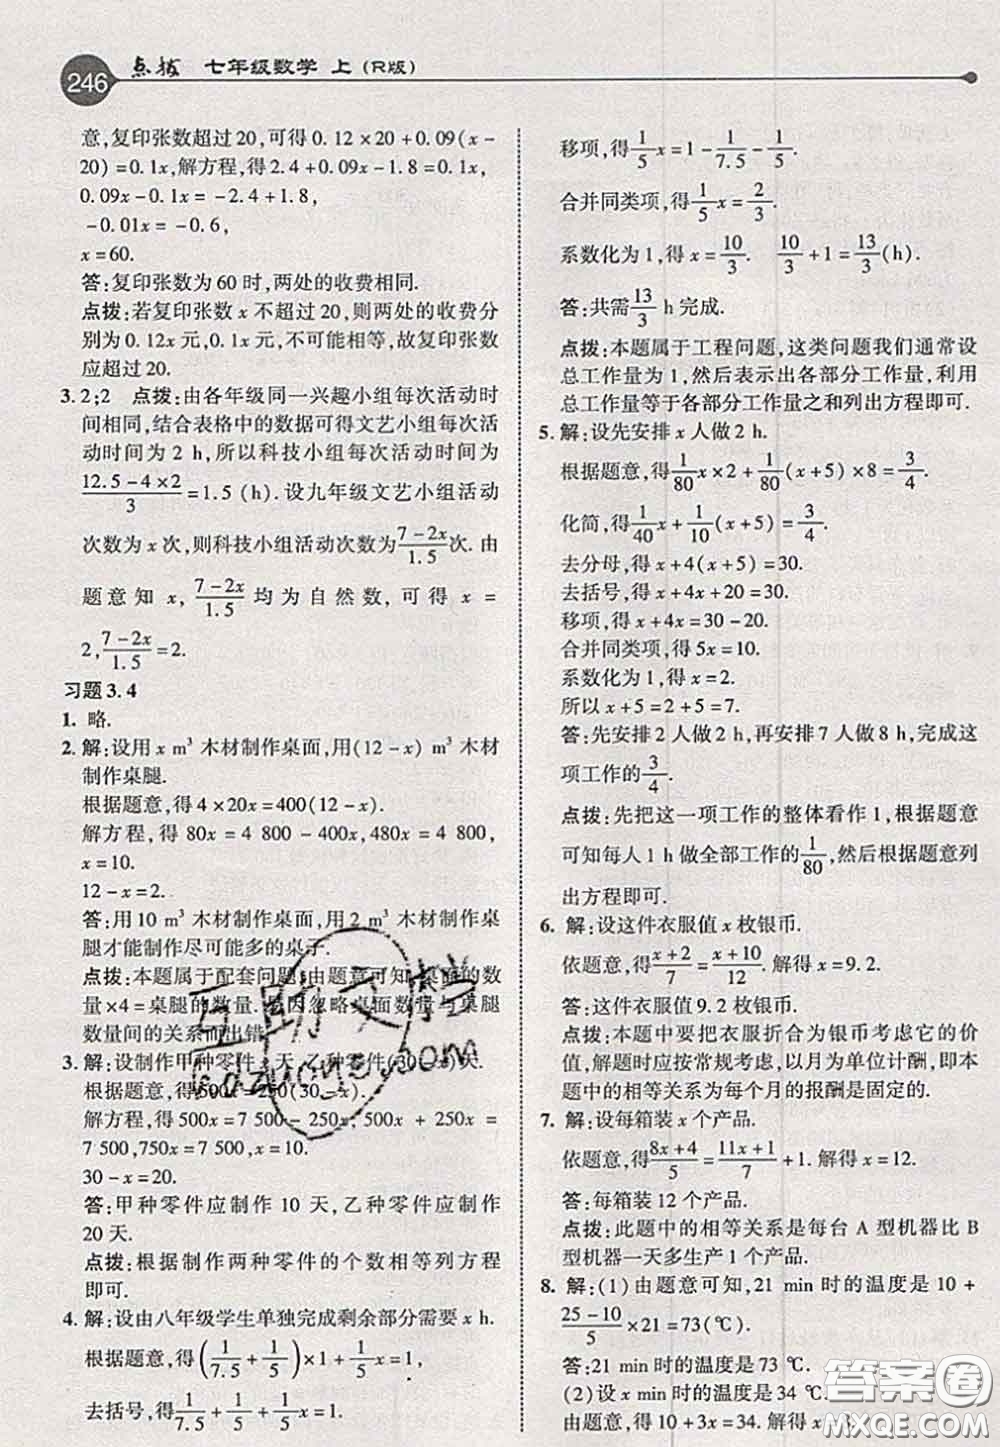 246 点拨 七年级数学 上(R版)
意,复印张数超过20,可得0.12×20+0.09(x-
20)=0.1x,解方程,得2.4+0.09x-1.8=0.1x,
0.09x-0.1x=-2.4+1.8,
-0.01x=-0.6,
x=60.
答:复印张数为60时,两处的收费相同.
点拨:若复印张数x不超过20,则两处的收费分
别为0.12x元,0.1x元,不可能相等,故复印张数
应超过20.
3. 2;2 点拨:由各年级同一兴趣小组每次活动时
间相同,结合表格中的数据可得文艺小组每次活
动时间为2 h,所以科技小组每次活动时间为
(12.5-4×2)/3=1.5(h).设九年级文艺小组活动
次数为x次,则科技小组活动次数为(7-2x)/1.5次.由
题意知x,(7-2x)/1.5均为自然数,可得x=
2,(7-2x)/1.5=2.
习题3.4
1. 略.
2. 解:设用x m³木材制作桌面,用(12-x) m³木材
制作桌腿.
根据题意,得4×20x=400(12-x).
解方程,得80x=4 800-400x,480x=4 800,
x=10.
12-x=2.
答:用10 m³木材制作桌面,用2 m³木材制作桌
腿才能制作尽可能多的桌子.
点拨:本题属于配套问题,由题意可知,桌面的数
量×4=桌腿的数量.易因忽略桌面数量与桌腿
数量间的关系而出错.
3. 解:设制作甲种零件x天,乙种零件(30-x)天.
根据题意,得500x=250(30-x).
解方程,得500x=7 500-250x,500x+250x=
7 500,750x=7 500,x=10.
30-x=20.
答:甲种零件应制作10天,乙种零件应制作
20天.
点拨:根据制作两种零件的个数相等列方程
即可.
4. 解:设由八年级学生单独完成剩余部分需要x h.
根据题意,得(1/7.5+1/5)×1+1/5x=1,
去括号,得1/7.5+1/5+1/5x=1.
移项,得1/5x=1-1/7.5-1/5.
合并同类项,得1/5x=2/3.
系数化为1,得x=10/3. 10/3+1=13/3(h).
答:共需13/3 h完成.
点拨:本题属于工程问题,这类问题我们通常设
总工作量为1,然后表示出各部分工作量,利用
总工作量等于各部分工作量之和列出方程即可.
5. 解:设先安排x人做2 h.
根据题意,得1/80x×2+1/80(x+5)×8=3/4.
化简,得1/40x+1/10(x+5)=3/4.
去分母,得x+4(x+5)=30.
去括号,得x+4x+20=30.
移项,得x+4x=30-20.
合并同类项,得5x=10.
系数化为1,得x=2.
所以x+5=2+5=7.
答:先安排2人做2 h,再安排7人做8 h,完成这
项工作的3/4.
点拨:先把这一项工作的整体看作1,由题意
可知每人1 h做全部工作的1/80,然后根据题意列
出方程即可.
6. 解:设这件衣服值x枚银币.
依题意,得(x+2)/7=(x+10)/12. 解得x=9.2.
答:这件衣服值9.2枚银币.
点拨:本题中要把衣服折合为银币考虑它的价
值,解题时应按常规考虑,以月为单位计酬,即本
题中的相等关系为每个月的报酬是固定的.
7. 解:设每箱装x个产品.
依题意,得(8x+4)/5=(11x+1)/7+1. 解得x=12.
答:每箱装12个产品.
点拨:此题中的相等关系是每台A型机器比B
型机器一天多生产1个产品.
8. 解:(1)由题意可知,21 min时的温度是10+
(25-10)/5×21=73(℃).
答:21 min时的温度是73 ℃.
(2)设x min时的温度是34 ℃.
由题意,得10+3x=34. 解得x=8.
互助文学
hdzuoye.com
答案圈
MXQE.COM